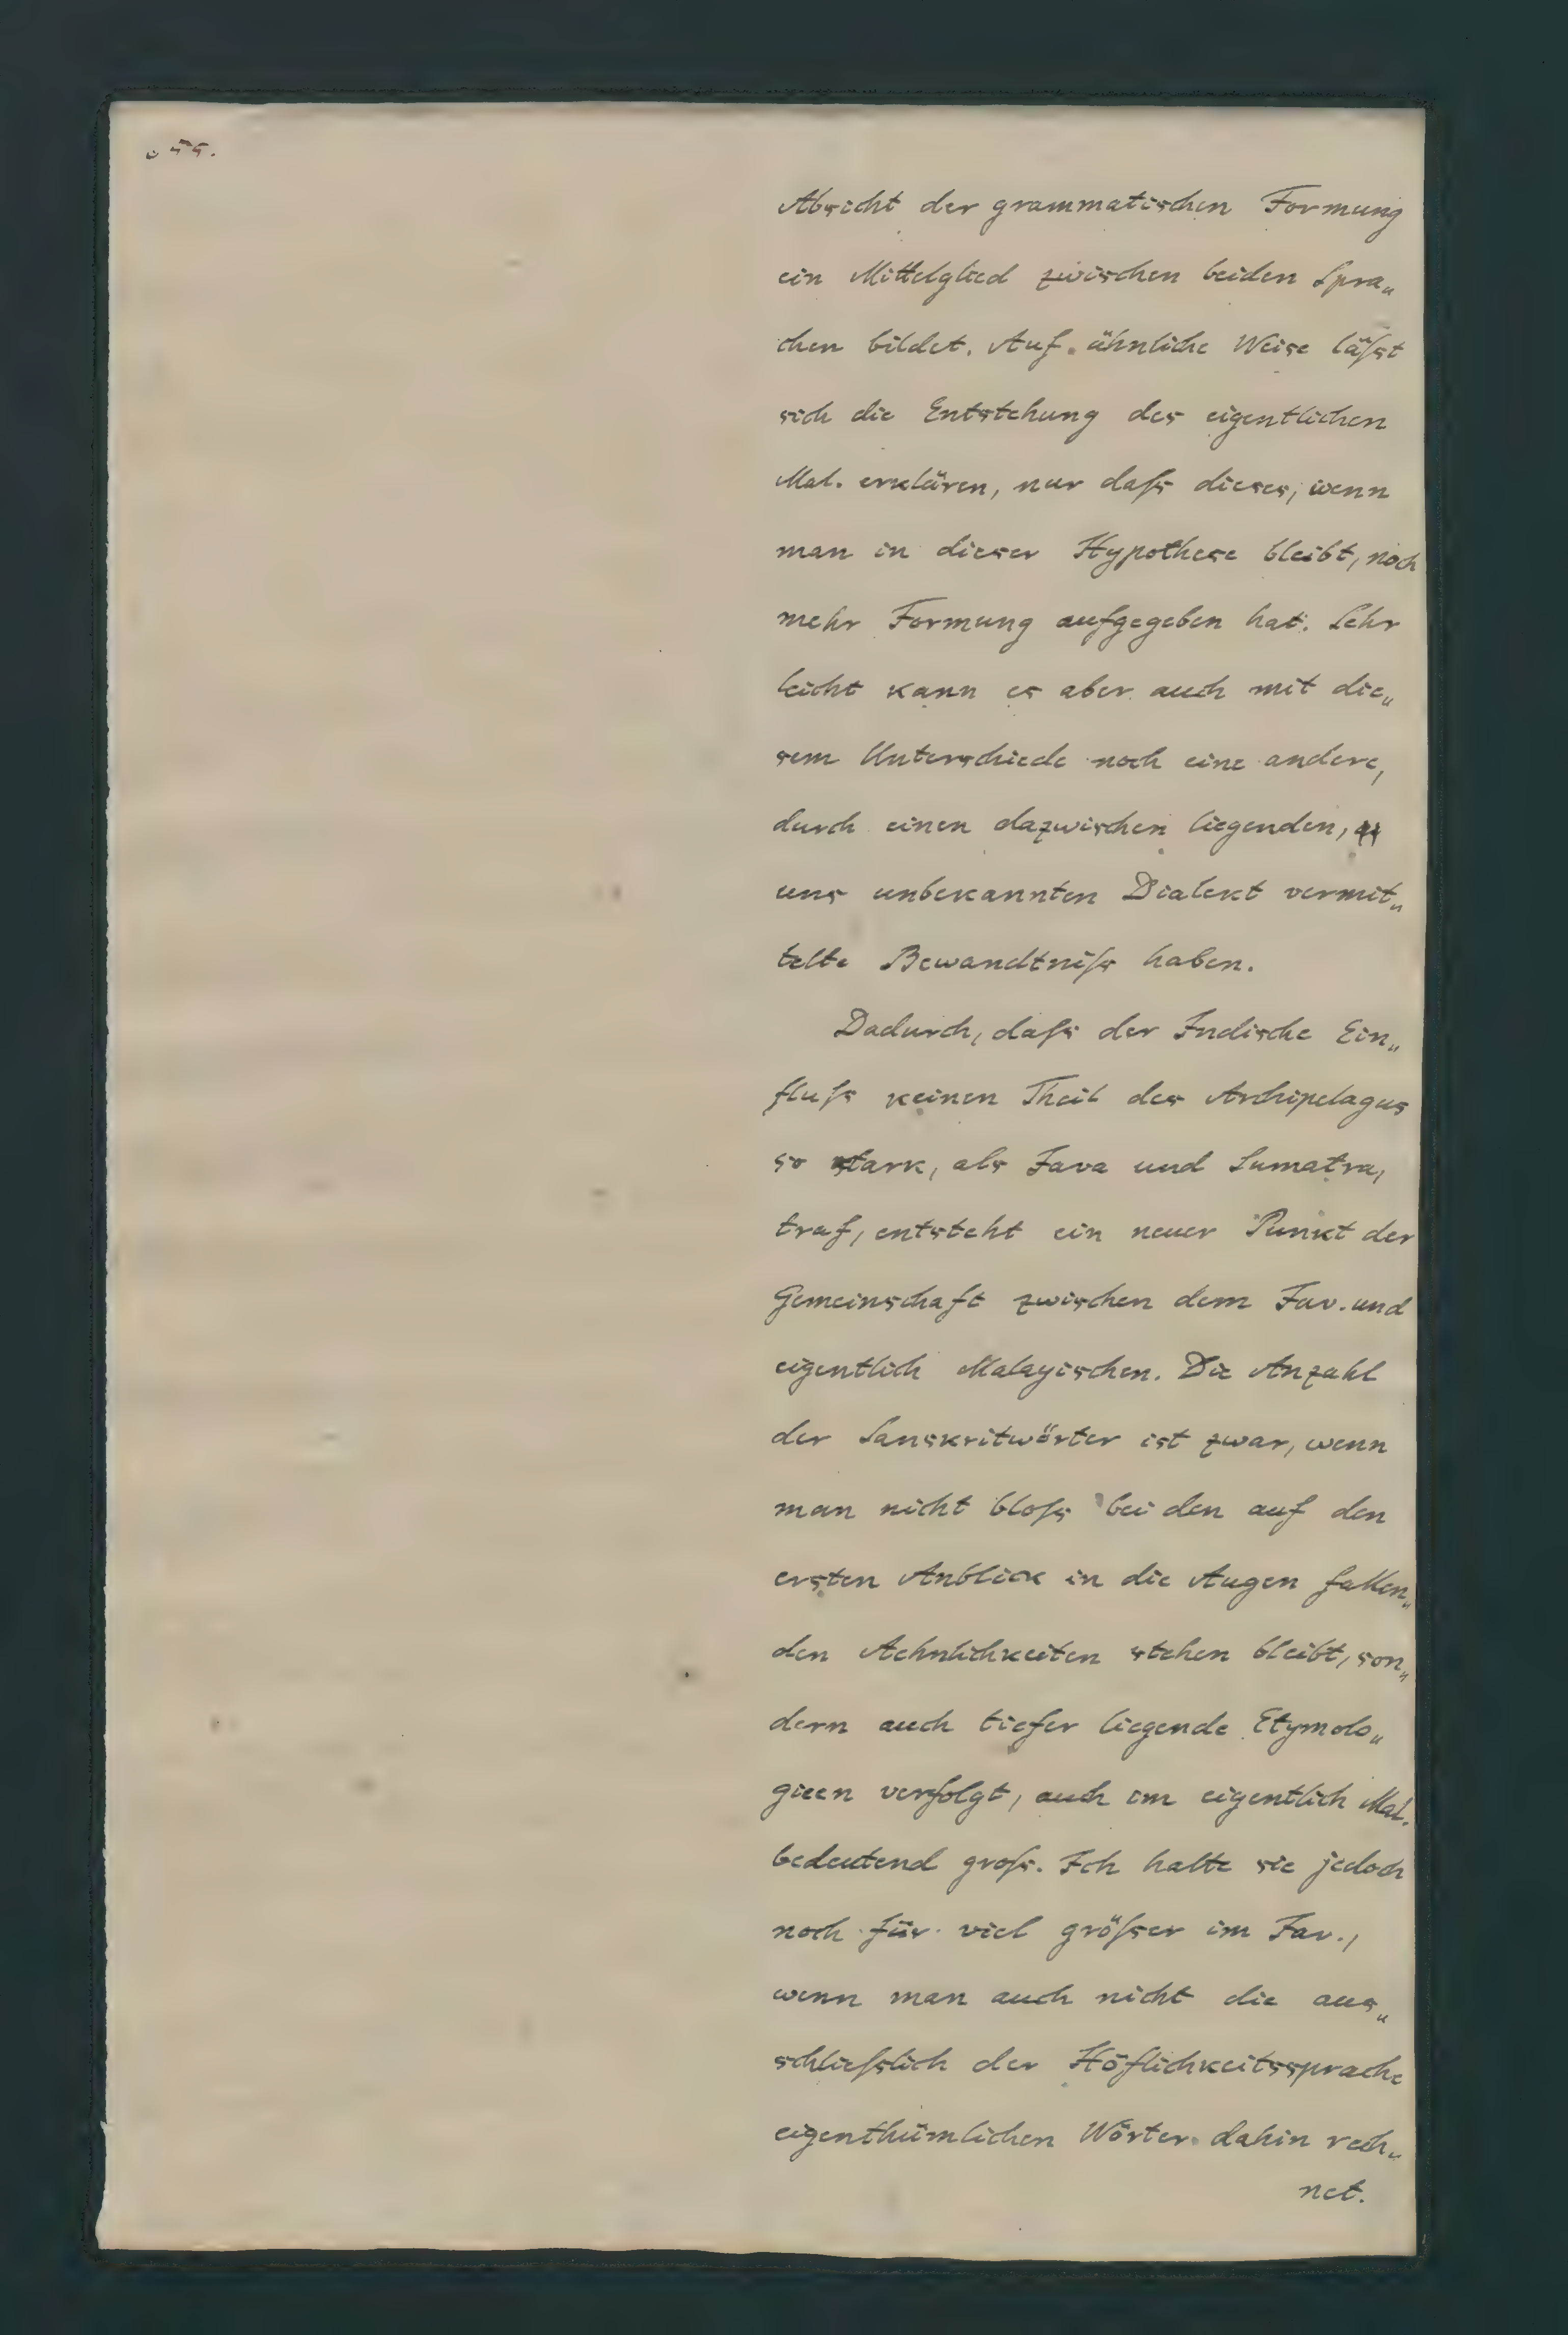 55.
Absicht der grammatischen Formung
ein Mittelglied zwischen beiden Spra„
chen bildet. Auf ähnliche Weise läſst
sich die Entstehung des eigentlichen
Mal. erklären, nur daſs dieses, wenn
man in dieser Hypothese bleibt, noch
mehr Formung aufgegeben hat. Sehr
leicht kann es aber auch mit die„
sem Unterschiede noch eine andere,
durch einen dazwischen liegenden,
uns unbekannten Dialekt vermit„
telte Bewandtniſs haben.
Dadurch, daſs der Indische Ein„
fluſs keinen Theil des Archipelagus
so stark, als Java und Sumatra,
traf, entsteht ein neuer Punkt der
Gemeinschaft zwischen dem Jav. und
eigentlich Malayischen. Die Anzahl
der Sanskritwörter ist zwar, wenn
man nicht bloſs bei den auf den
ersten Anblick in die Augen fallen„
den Aehnlichkeiten stehen bleibt, son„
dern auch tiefer liegende Etymolo„
gieen verfolgt, auch im eigentlich Mal.
bedeutend groſs. Ich halte sie jedoch
noch für viel gröſser im Jav.,
wenn man auch nicht die aus„
schlieſslich der Höflichkeitssprache
eigenthümlichen Wörter dahin rech„
net.